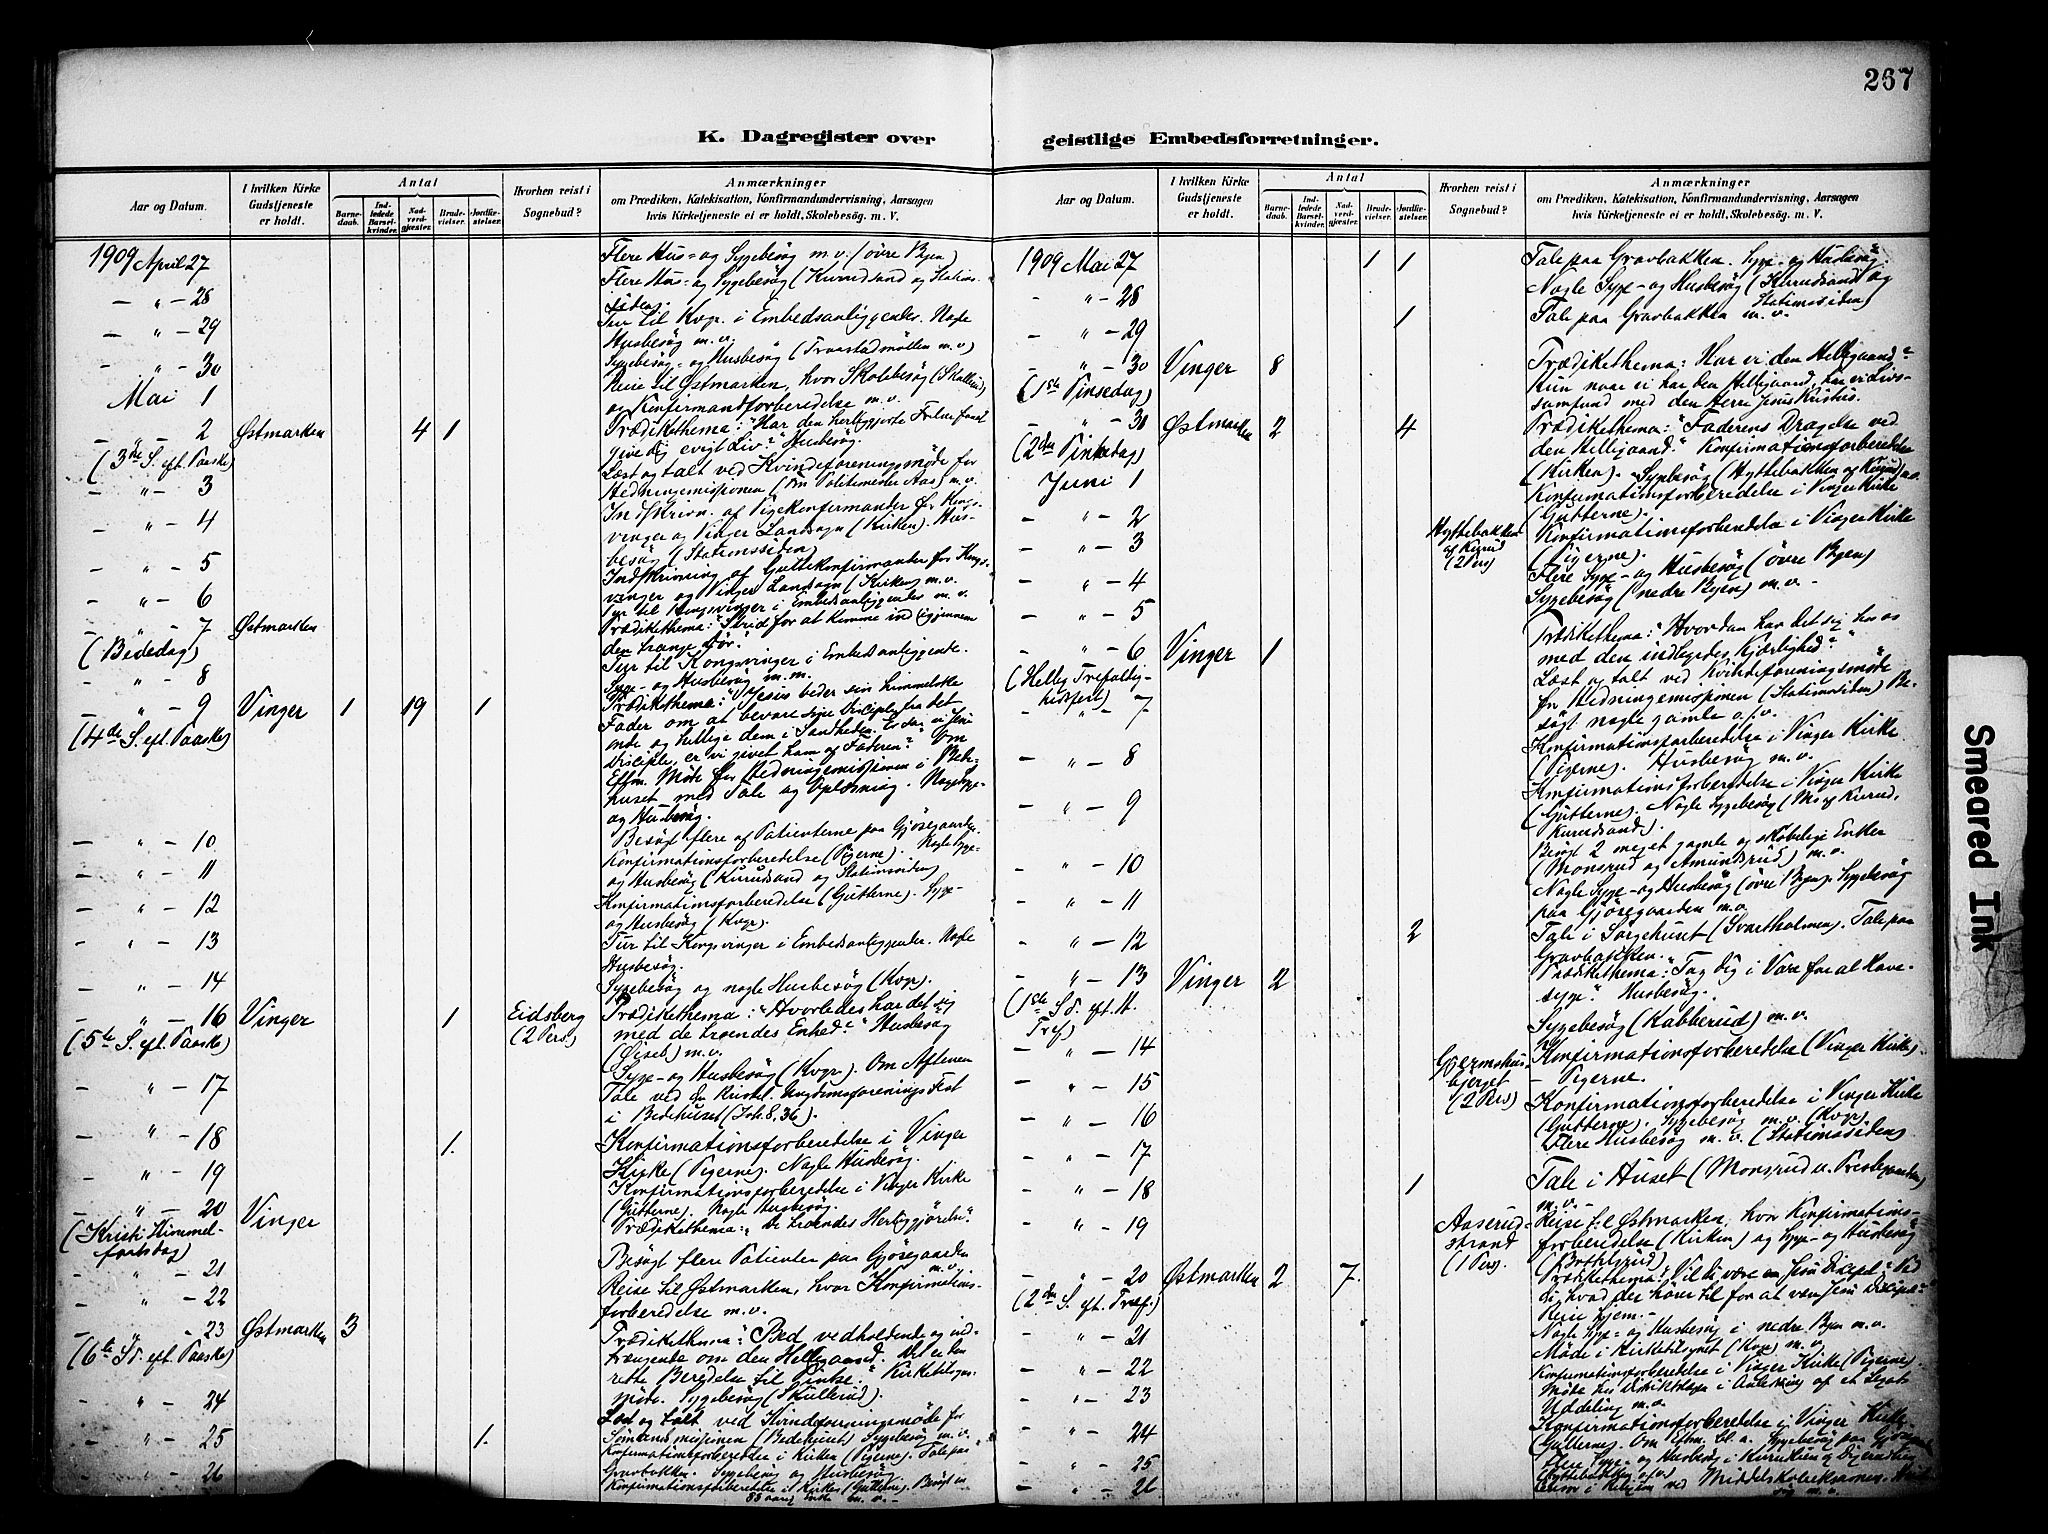 267
K. Dagregister over geistlige Embedsforretninger.
Aar og Datum.
I hvilken Kirke Gudstjeneste er holdt.
Antal
Barnedaab.
Indledede Barselkvinder.
Nadverdgjæster.
Brudevielser.
Jordfæstelser.
Hvorhen reist i Sognebud?
Anmærkninger
om Prædiken, Katekisation, Konfirmandundervisning, Aarsagen
hvis Kirketjeneste ei er holdt, Skolebesøg. m. V.
1909 April 27 Flere Hus- og Sygebesøg m.v. (øvre Byen)
— " — 28 Flere Hus- og Sygebesøg (Kurudsand og Stationssiden).
— " — 29 Tur til Kvgr. i Embedsanliggender. Nogle
Husbesøg m.v.
— " — 30 Sygebesøg- og Husbesøg (Traastadmøllen m.v)
Mai 1 Reise til Østmarken, hvor Skolebesøg (Skullerud)
og Konfirmandforberedelse m.v.
— " — 2 Østmarken 4 1 Prædikethema: "Har den herliggjorte Frelser faaet
(3die S. eft. Paaske) give dig evigt Liv?" Husbesøg.
— " — 3 Læst og talt ved Kvindeforeningsmøde for
Hedningemissionen (Fru Politimester Aas) m.v.
— " — 4 Indskrivn. af Pigekonfirmander for Kongsvinger
og Vinger Landsogn (Kirken). Husbesøg
(Stationssiden)
— " — 5 Indskrivning af Guttekonfirmander for Kongsvinger
og Vinger Landsogn (Kirken) m.v.
— " — 6 Tur til Kongsvinger i Embedsanliggender m.v.
— " — 7 Østmarken Prædikethema: "Strid for at komme ind igjennem
(Bededag) den trange Dør."
— " — 8 Tur til Kongsvinger i Embedsanliggender.
Syge- og Husbesøg m.m.
— " — 9 Vinger 1 19 1 Prædikethema: "Jesus beder sin himmelske
(4de S. eft. Paaske) Fader om at bevare sine Disciple fra det
onde og hellige dem i Sandheden. Er du en Jesu
Discipel, er vi givet ham af Faderen?" Om
Eftm. Møde for Hedningemissionen i Bedehuset
med Tale og Oplæsning. Nogle Syge-
og Husbesøg.
— " — 10 Besøgt flere af Patienterne paa Gjøsegaarden.
— " — 11 Konfirmationsforberedelse (Pigerne). Nogle Syge-
og Husbesøg (Kurudsand og Stationssiden)
— " — 12 Konfirmationsforberedelse (Gutterne). Syge-
og Husbesøg (Kvgr).
— " — 13 Tur til Kongsvinger i Embedsanliggender. Nogle
Husbesøg.
— " — 14 Sygebesøg og nogle Husbesøg (Kvgr).
— " — 16 Vinger 1 Eidsberg (2 Pers) Prædikethema: "Hvorledes har det sig
(5te S. eft. Paaske) med de troendes Enhed?" Husbesøg
(Øiseb) m.v.
— " — 17 Syge- og Husbesøg (Kvgr). Om Aftenen
Tale ved den Kristel. Ungdomsforenings Fest
i Bedehuset (Joh. 8, 36).
— " — 18 1. Konfirmationsforberedelse i Vinger
Kirke (Pigerne). Nogle Husbesøg.
— " — 19 Konfirmationsforberedelse i Vinger Kirke
(Gutterne). Nogle Husbesøg.
— " — 20 Vinger Prædikethema: "De troendes Herliggjørelse".
(Kristi Himmelfartsdag)
— " — 21 Besøgt flere Patienter paa Gjøsegaarden
m.v.
— " — 22 Reise til Østmarken, hvor Konfirmationsforberedelse
m.v.
— " — 23 Østmarken 3 Prædikethema: "Bed vedholdende og indtrængende
(6te S. eft. Paaske) om den Helligaand. Det er den
rette Beredelse til Pinse." Kirketilsynsmøde.
Sygebesøg (Skullerud).
— " — 24 Læst og talt ved Kvindeforeningsmøde for
Sømandsmissionen (Bedehuset) Sygebesøg m.v.
— " — 25 1. Konfirmationsforberedelse i Kirken (Pigerne). Tale paa
Gravbakken. Sygebesøg og Husbesøg.
— " — 26 Konfirmationsforberedelse i Kirken (Gutterne). Besøgt en
88 aarig Enke m.v. —
Aar og Datum.
I hvilken Kirke Gudstjeneste er holdt.
Antal
Barnedaab.
Indledede Barselkvinder.
Nadverdgjæster.
Brudevielser.
Jordfæstelser.
Hvorhen reist i Sognebud?
Anmærkninger
om Prædiken, Katekisation, Konfirmandundervisning, Aarsagen
hvis Kirketjeneste ei er holdt, Skolebesøg. m. V.
1909 Mai 27 1 1 Tale paa Gravbakken. Syge- og Husbesøg.
— " — 28 Nogle Syge- og Husbesøg (Kurudsand og
Stationssiden)
— " — 29 1 Tale paa Gravbakken m.v.
— " — 30 Vinger 8 Prædikethema: Har vi den Helligaand?
(1ste Pinsedag) Kun naar vi har den Helligaand, har vi Livssamfund
med den Herre Jesus Kristus.
— " — 31 Østmarken 2 4 Prædikethema: "Faderens Dragelse ved
(2den Pinsedag) den Helligaand." Konfirmationsforberedelse
(Kirken).
Juni 1 Sygebesøg (Hyttebakken og Kurud)
— " — 2 Hyttebakken og Kurud (2 Pers) Konfirmationsforberedelse i Vinger Kirke
(Gutterne).
— " — 3 Konfirmationsforberedelse i Vinger Kirke
(Pigerne).
— " — 4 Flere Syge- og Husbesøg (øvre Byen)
— " — 5 Sygebesøg (nedre Byen) m.v.
— " — 6 Vinger 1 Prædikethema: "Hvordan har det sig hos os
(Hellig Trefoldighedsfest) med den indbyrdes Kjærlighed?"
— " — 7 Læst og talt ved Kvindeforeningsmøde
for Hedningemissionen (Stationssiden) Besøgt
nogle gamle o.s.v.
— " — 8 Konfirmationsforberedelse i Vinger Kirke
(Pigerne). Husbesøg m.v.
— " — 9 Konfirmationsforberedelse i Vinger Kirke
(Gutterne). Nogle Sygebesøg (Mo og Kurud,
Kurudsand).
— " — 10 Besøgt 2 meget gamle og skrøbelige Enker
(Monsrud og Amundsrud) m.v.
— " — 11 Nogle Syge- og Husbesøg (øvre Byen). Sygebesøg
paa Gjøsegaarden m.v.
— " — 12 2 Tale i Sørgehuset (Svartholmen). Tale paa
Gravbakken.
— " — 13 Vinger 2 Prædikethema: "Tag dig i Vare for al Havesyge".
(1ste S. eft. Tref) Husbesøg.
— " — 14 Sygebesøg (Rabberud) m.v.
— " — 15 (2 Pers) Konfirmationsforberedelse (Vinger Kirke)
— Pigerne.
— " — 16 Konfirmationsforberedelse i Vinger Kirke
(Gutterne). Sygebesøg m.v. (Kvgr)
— " — 17 Flere Husbesøg m.v. (Stationssiden)
— " — 18 1 Tale i Huset (Monsrud u. Prestegaarden)
m.v. —
— " — 19 Aaserudstrand (1 Pers). Reise til Østmarken, hvor Konfirmationsforberedelse
(Kirken) og Syge- og Husbesøg
— " — 20 Østmarken 2 7 Prædikethema: Vil du være en Jesu Discipel? Ved
(2den S. eft. Tref.) du, hvad der hører til for at være Jesu Discipel?"
Reise hjem. —
— " — 21 Nogle Syge- og Husbesøg i nedre Byen m.v.
Møde i Kirketilsynet (Kvgr) m.v.
— " — 22 Konfirmationsforberedelse i Vinger Kirke (Pigerne).
— " — 23 Møde hos i Anledning af et Legats
Uddeling m.v.
— " — 24 Konfirmationsforberedelse i Vinger Kirke
(Gutterne). Om Eftm. bl. a. Sygebesøg paa
— " — 25 Flere Syge- og Husbesøg
— " — 26 i Religion ved Middelskoleeksamen.
Smeared Ink